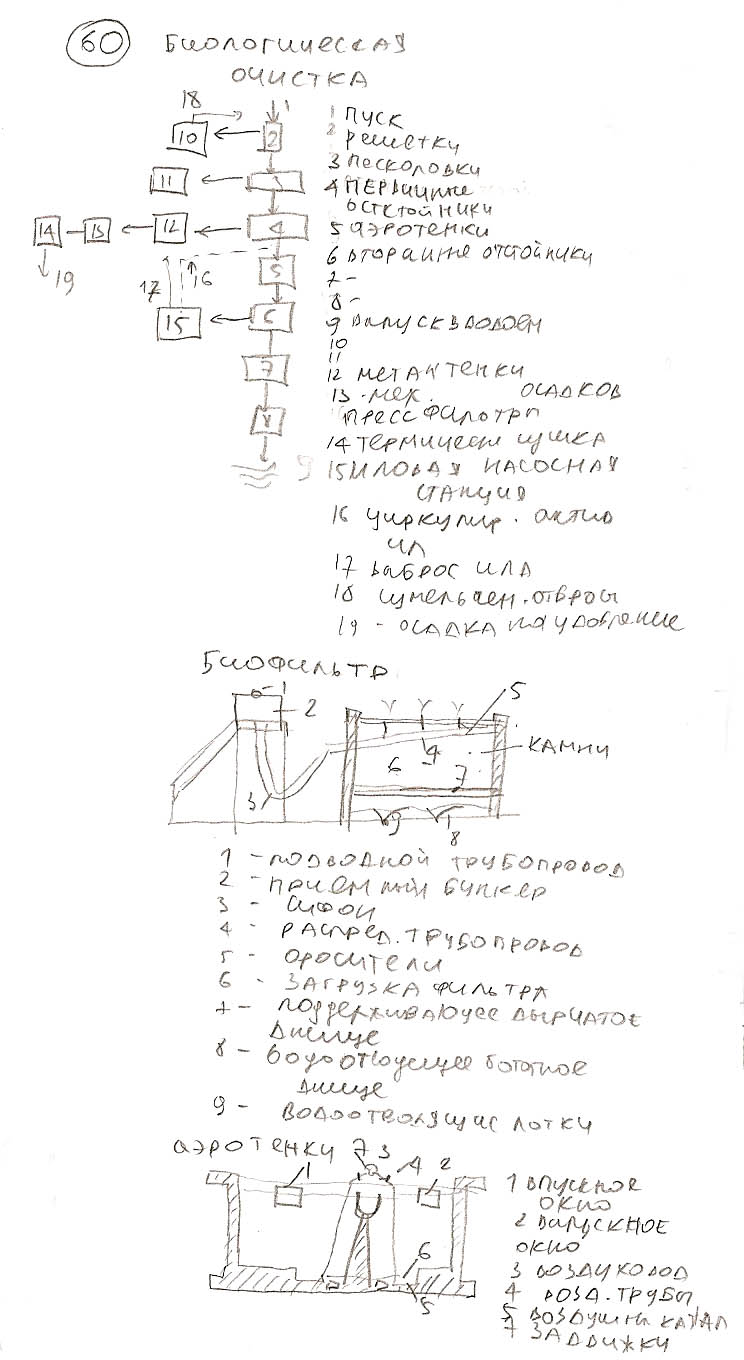 60 БИОЛОГИЧЕСКАЯ
ОЧИСТКА
18
1
10
2
11
3
14
13
12
4
19
17
16
5
15
6
7
8
9
1 ПУСК
2 решетку
3 песколовки
4 ПЕРВИЧНЫЕ
ОТСТОЙНИКИ
5 аэротенки
6 вторичные отстойники
7 -
8 -
9 выпуск в водоем
10
11
12 метантенки
13 мех. осадков
пресс фильтры
14 термическая сушка
15 иловая насосная
станция
16 циркулир. актив
ил
17 выброс ила
18 измельчен. отбросы
19 - осадка на удобрение
БИОФИЛЬТР
1
2
3
5
КАМНИ
6
4
7
9
8
1 - подводной трубопровод
2 - приемный бункер
3 - сифон
4 - распред. трубопровод
5 - оросители
6 - загрузка фильтра
7 - поддерживающее дырчатое
днище
8 -
днище
9 - лотки
аэротенки
1
7
3
4
2
6
5
1 впускное
окно
2 выпускное
окно
3 воздуховод
4 возд. трубы
5 воздушн канал
7 задвижки